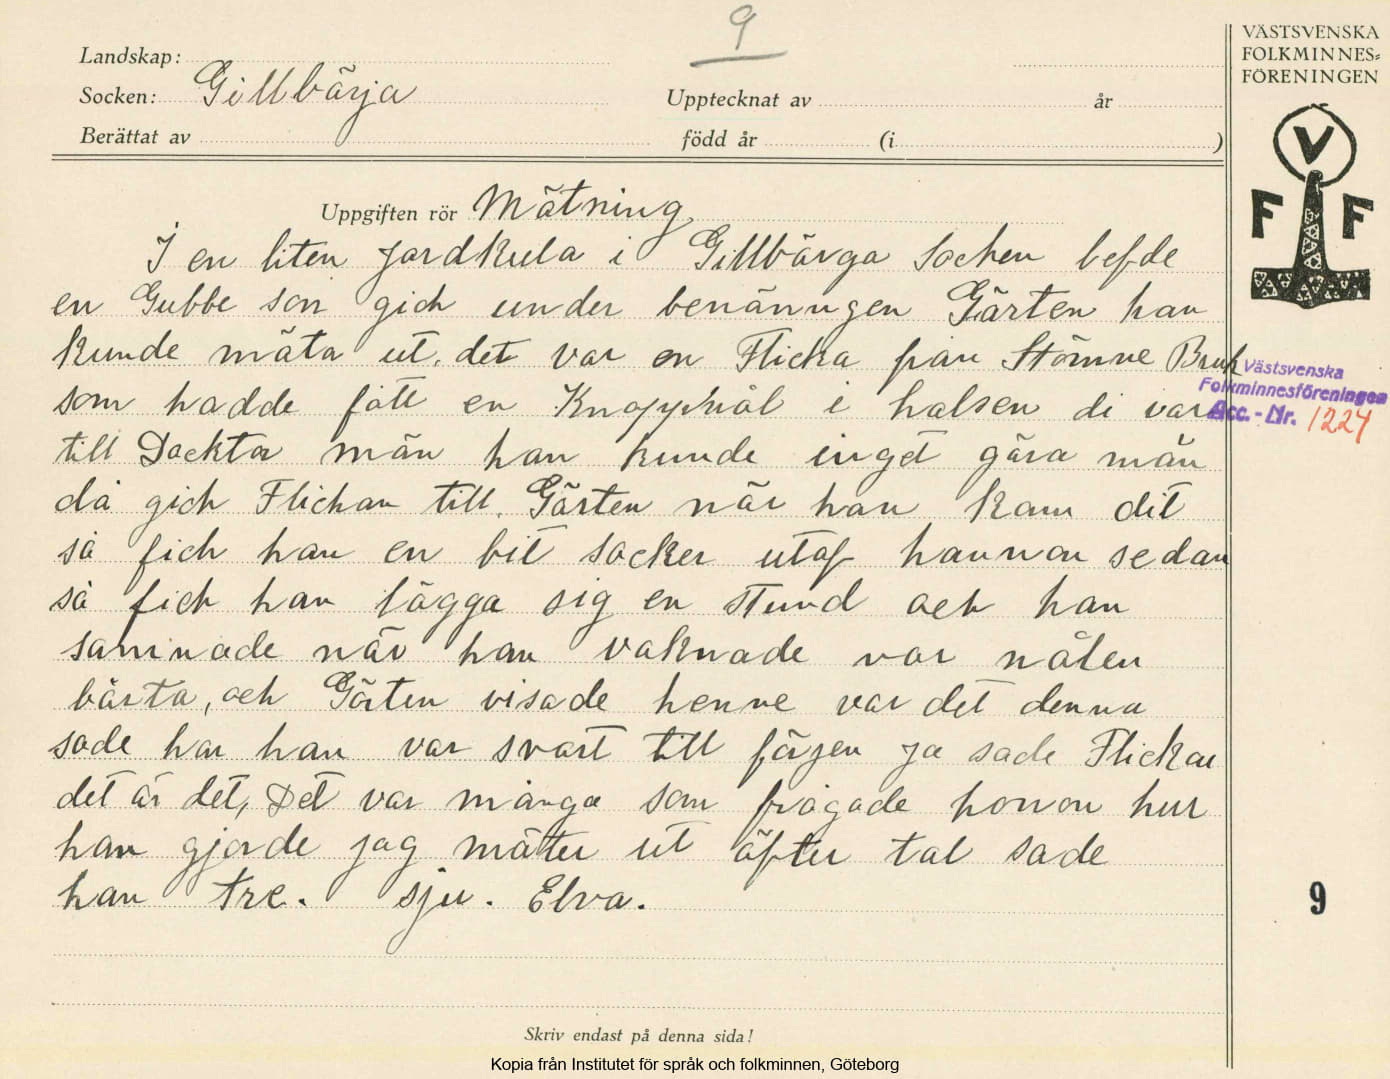 9
Landskap:
Socken: Gillbärja
Upptecknat av år
Berättat av född år (i )
VÄSTSVENSKA
FOLKMINNES=
FÖRENINGEN
V
F F
Uppgiften rör Mätning,
I en liten jordkula i Gillbärga Socken lefde
en Gubbe som gick under benänngen Gärten han
kunde mäta ut. det var en Flicka från Stömne Bruk
som hadde fått en Knappnål i halsen di var
till Docktor män han kunde inget gära män
då gick Flickan till. Gärten när han kam dit
så fick han en bit socker utaf honnon sedan
så fick han lägga sig en stund ock han
samnade när han vaknade var nålen
bårta, ock Gärten visade henne var det denna
sade har han var svart till färjen ja sade Flickan
det är det, Det var många som frågade honnon hur
han gjorde jag mäter ut äfter tal sade
han tre. sju. Elva.
Västsvenska
Folkminnesföreningen
Acc. - Nr. 1224
9
Skriv endast på denna sida!
Kopia från Institutet för språk och folkminnen, Göteborg